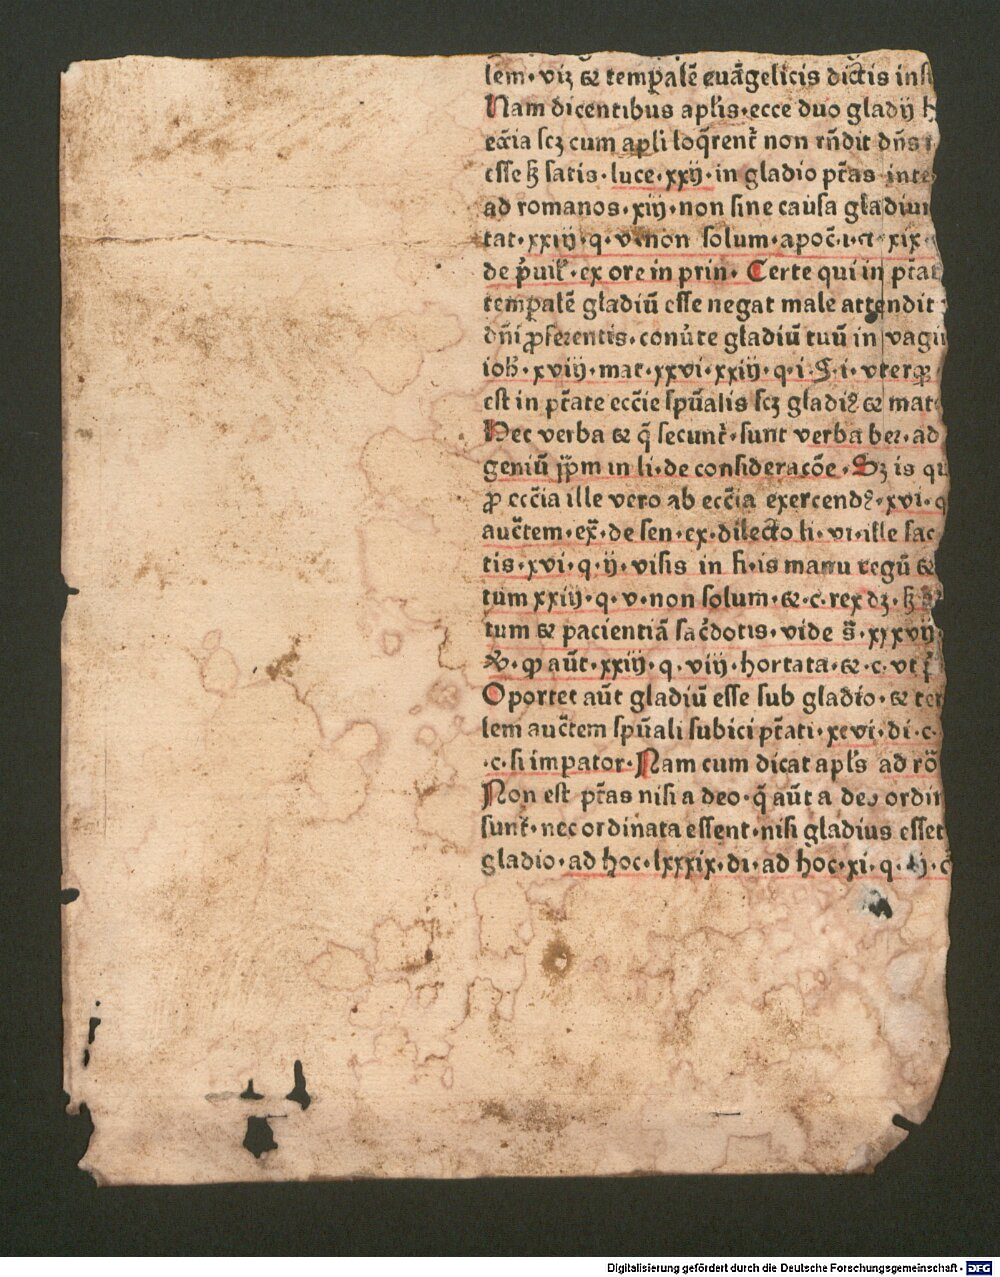 lem · viz & tempalē euāgelicis dictis inst
Nam dicentibus aplis · ecce duo gladij h
eccīa scꝫ cum apli loqrent̄ non rn̄dit dn̄s
esse hꝫ satis · luce · xxij · in gladio ptās inte
ad romanos · xiij · non sine causa gladiu
tat · xxiij · q · v · non solum · apoc̄ · i · ⁊ · xix ·
de p̄uil̄ · ex ore in prin · Certe qui in ptāt
tempalē gladiū esse negat male attendit
dn̄i ꝓferentis · conūte gladiū tuū in vagi
ioh̄ · xviij · mat · xxvi · xxiij · q · i · §· i · vterqꝫ
est in ptāte ecc̄ie spūalis scꝫ gladiꝰ & mat
Hec verba & q̄ secunt̄ · sunt verba ber · ad
geniū pp̄m in li · de consideracōe · Sꝫ is qu
ꝓ ecc̄ia ille vero ab ecc̄ia exercendꝰ · xvi · q
auc̄tem · ex̄ · de sen · ex · dilecto li · vi · ille sac
tis · xvi · q · ij · visis in fi · is manu regū &
tum xxiij · q · v · non solum · & · c · rex dꝫ · hꝫ
tum & pacientiā sac̄dotis · vide s̄ · xxxvij
· ꝙ aūt · xxiij · q · viij · hortata · & · c · vt
Oportet aūt gladiū esse sub gladio · & te
lem auc̄tem spūali subici ptāti · xcvi · di · c ·
· c · si impator · Nam cum dicat apl̄s ad rō
Non est ptās nisi a deo · q̄ aūt a deo ordin
sunt̄ · nec ordinata essent · nisi gladius esset
gladio · ad hoc · lxxxix · di · ad hoc · xi · q · ij · c
Digitalisierung gefördert durch die Deutsche Forschungsgemeinschaft - DFG